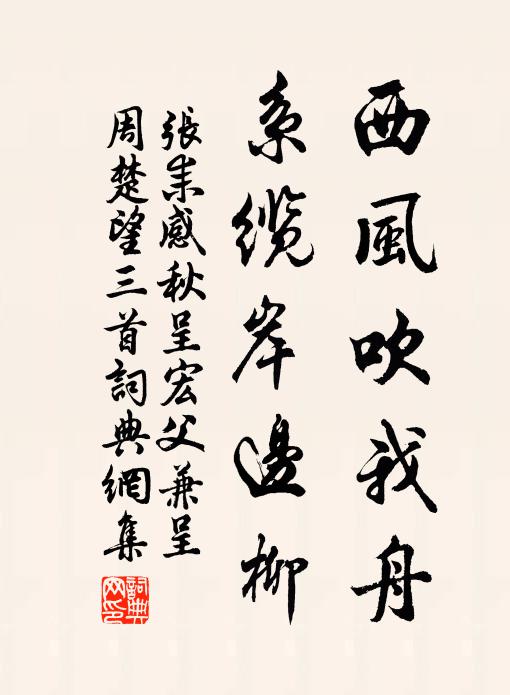 西風吹我舟
系纜岸邊柳
張耒感秋呈宏父兼呈
周楚望三首詞典網集
詞典網印